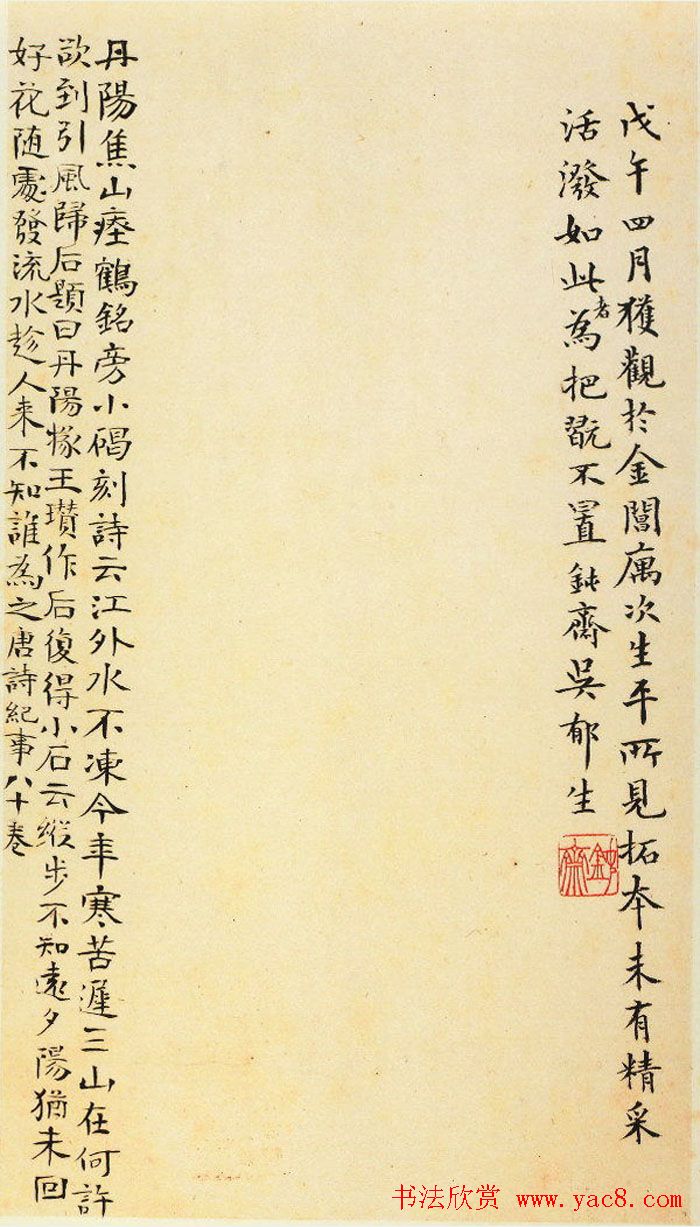 戊午四月獲觀於金閶寓次生平所見拓本未有精采
活潑如此者為把翫不置鈍齋吳郁生
鈍齋
丹陽焦山瘞鶴銘旁小碣刻詩云江外水不凍今年寒苦遲三山在何許
欲到引風歸后題曰丹陽掾王瓚作后復得小石云縱步不知遠夕陽猶未回
好花随處發流水趁人来不知誰為之唐詩紀事八十卷
书法欣赏 www.yac8.com